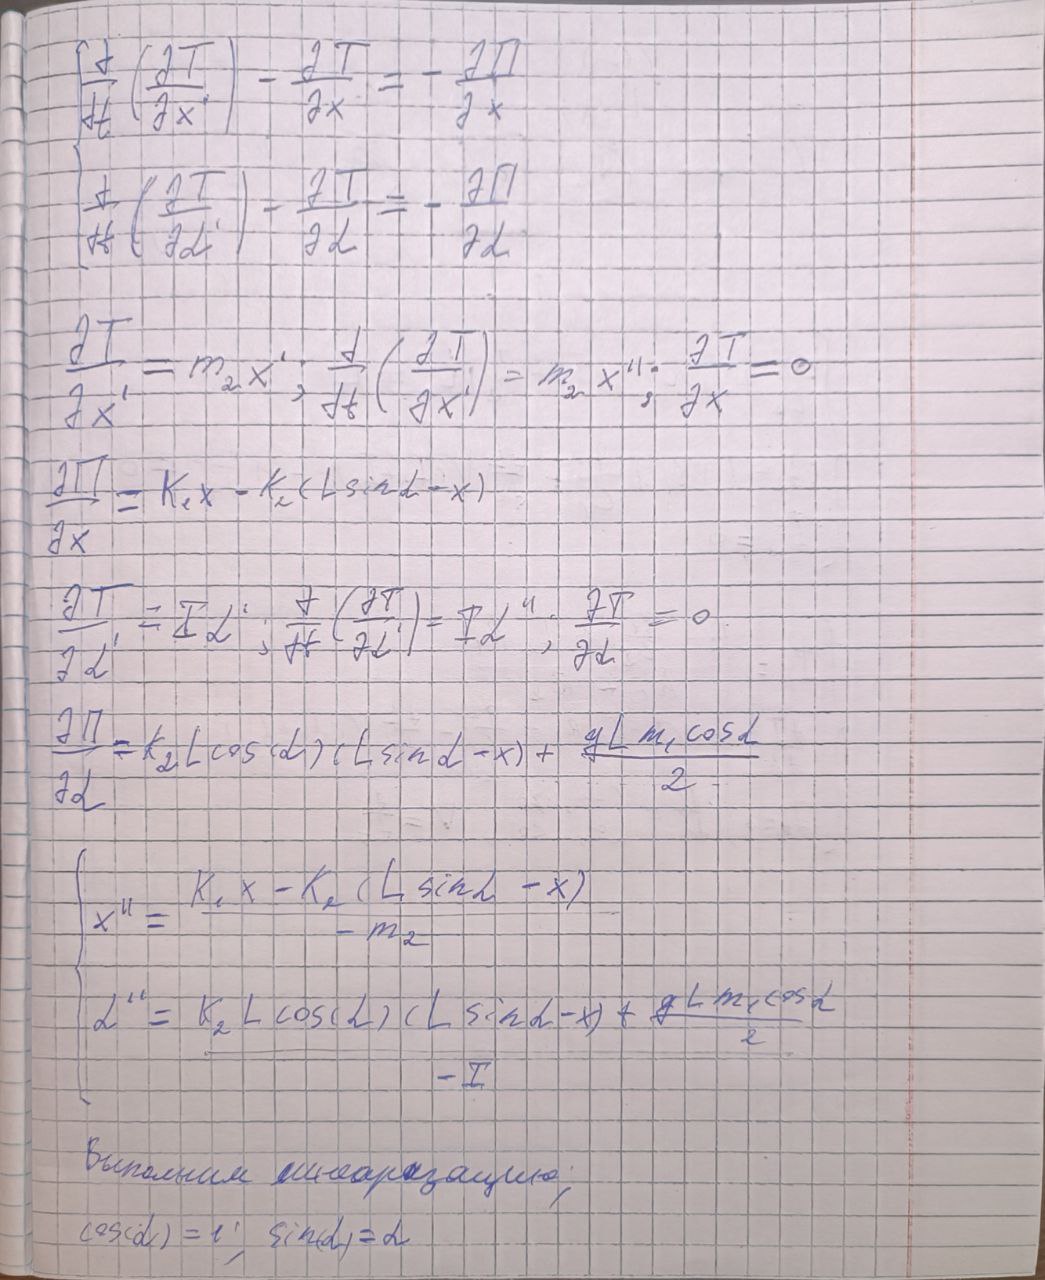 d/dt (∂T/∂x') - ∂T/∂x = - ∂П/∂x
d/dt (∂T/∂α') - ∂T/∂α = - ∂П/∂α
∂T/∂x' = m₂x'; d/dt (∂T/∂x') = m₂x''; ∂T/∂x = 0
∂П/∂x = K₁x - K₂(L sinα - x)
∂T/∂α' = Iα'; d/dt (∂T/∂α') = Iα''; ∂T/∂α = 0
∂П/∂α = K₂L cos(α)(L sinα - x) + gLm₁cosα/2
x'' = (K₁x - K₂(L sinα - x))/(-m₂)
α'' = (K₂L cos(α)(L sinα - x) + gLm₁cosα/2)/(-I)
Выполним линеаризацию;
cos(α) = 1; sin(α) = α